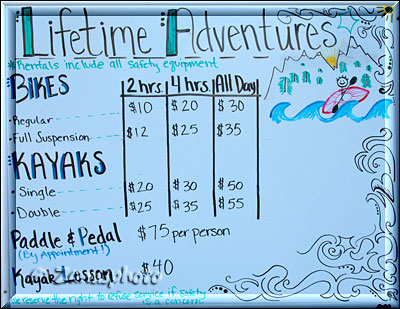 Lifetime Adventures
*Rentals include all safety equipment
BIKES 2 hrs. 4 hrs. All Day
·Regular $10 $20 $30
·Full Suspension $12 $25 $35
KAYAKS
·Single $20 $30 $50
·Double $25 $35 $55
Paddle & Pedal $75 per person
(By Appointment!)
Kayak Lesson $40
we reserve the right to refuse service if safety
is a concern.